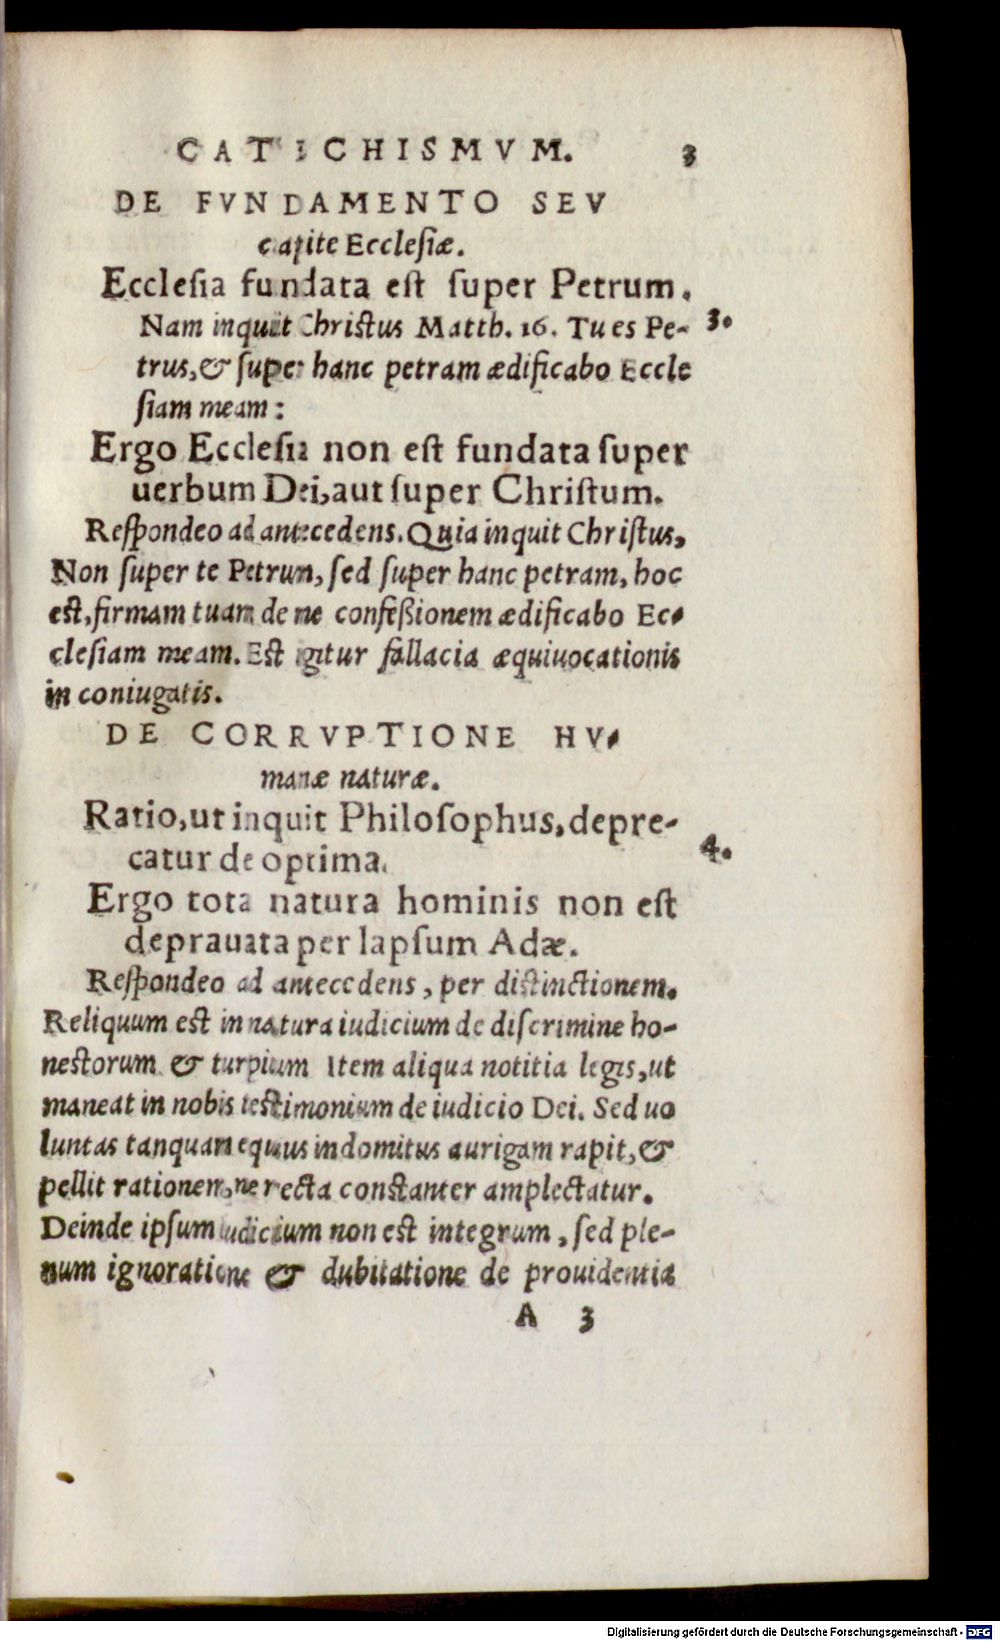 CATECHISMVM. 3
DE FVNDAMENTO SEV
capite Ecclesiæ.
Ecclesia fundata est super Petrum.
Nam inquit Christus Matth. 16. Tu es Pe- 3.
trus, & super hanc petram ædificabo Eccle
siam meam:
Ergo Ecclesia non est fundata super
uerbum Dei, aut super Christum.
Respondeo ad antecedens. Quia inquit Christus,
Non super te Petrum, sed super hanc petram, hoc
est, firmam tuam de me confeßionem ædificabo Ec-
clesiam meam. Est igitur fallacia æquiuocationis
in coniugatis.
DE CORRVPTIONE HV-
manæ naturæ.
Ratio, ut inquit Philosophus, depre-
catur de optima. 4.
Ergo tota natura hominis non est
deprauata per lapsum Adæ.
Respondeo ad antecedens, per distinctionem.
Reliquum est in natura iudicium de discrimine ho-
nestorum & turpium Item aliqua notitia legis, ut
maneat in nobis testimonium de iudicio Dei. Sed uo
luntas tanquam equus indomitus aurigam rapit, &
pellit rationem, ne recta constanter amplectatur.
Deinde ipsum iudicium non est integrum, sed ple-
num ignoratione & dubitatione de prouidentia
A 3
Digitalisierung gefördert durch die Deutsche Forschungsgemeinschaft - DFG